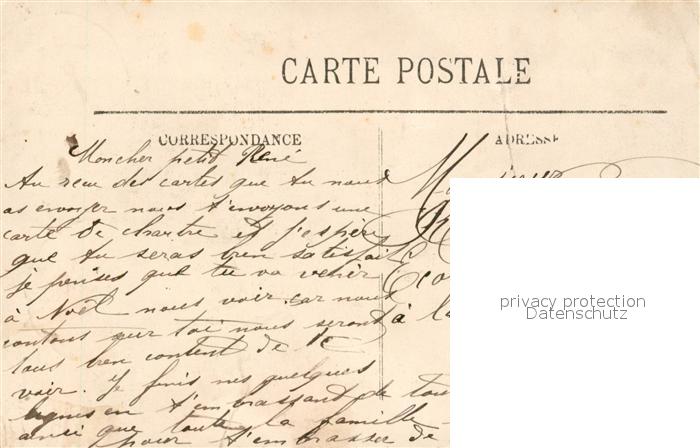 CARTE POSTALE
CORRESPONDANCE
ADRESSE
Moncher petit René
Au recu des cartes que tu nous
as envoyer nous t'envoyons une
carte de chartre et j'espère
que tu seras bien satisfait
je penses que tu va venir
à Noël nous voir car nous
contons sur toi nous seront
tous bien content de te
voir. Je finis mes quelques
lignes en t'embrassant de tou
ainsi que toute la famille
pour t'embrasser de
à la
privacy protection
Datenschutz